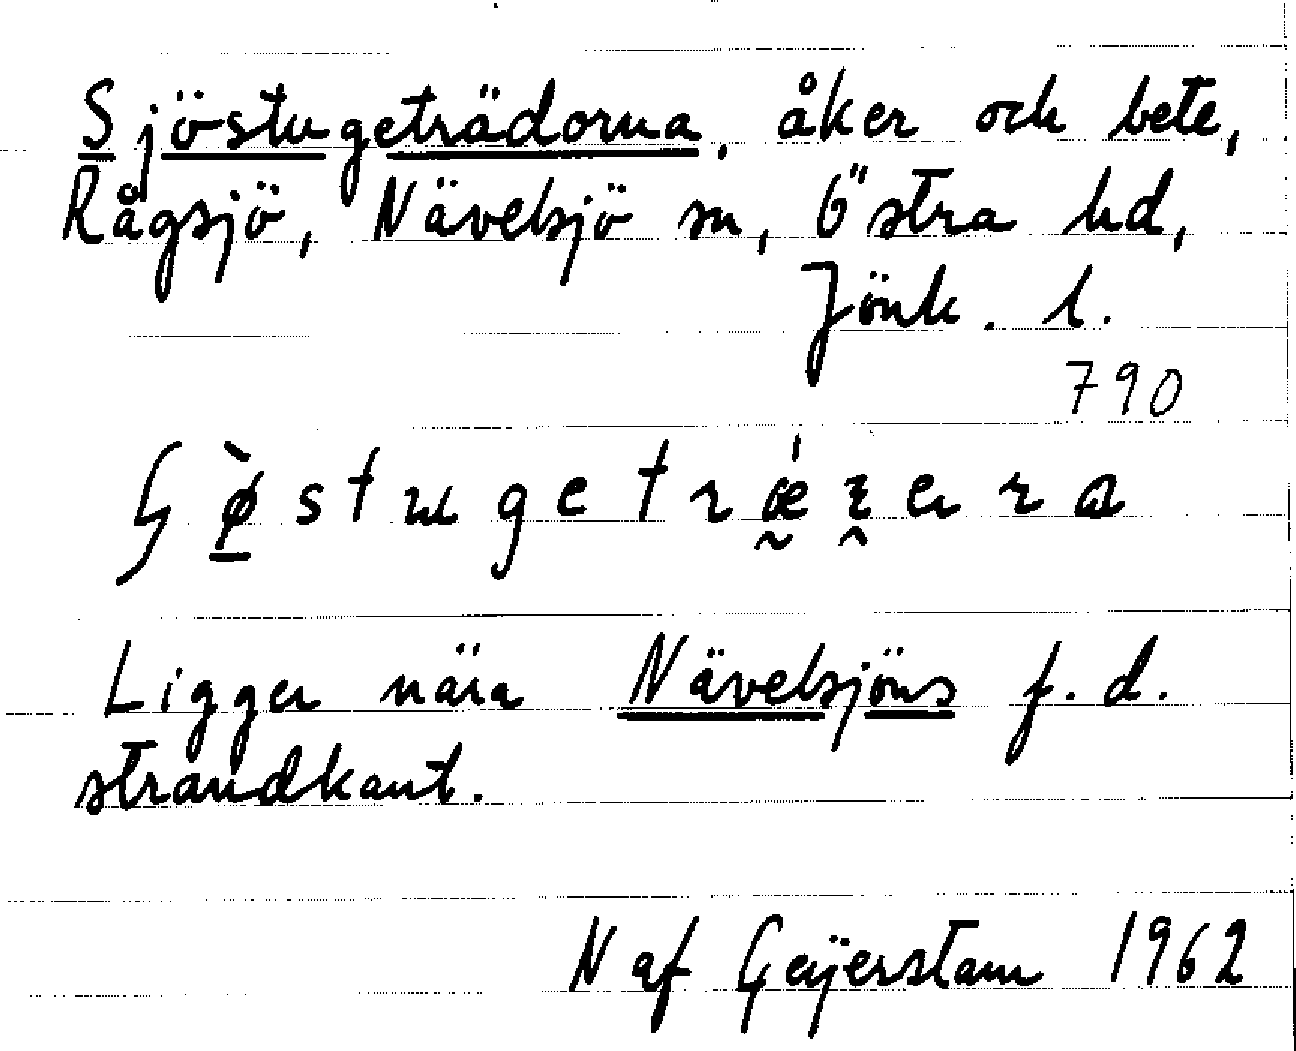 Sjöstugeträdorna, åker och bete,
Rågsjö, Nävelsjö sn, Östra hd,
Jönk. l.
790
Ligger nära Nävelsjöns f. d.
strandkant.
N af Geijerstam 1962